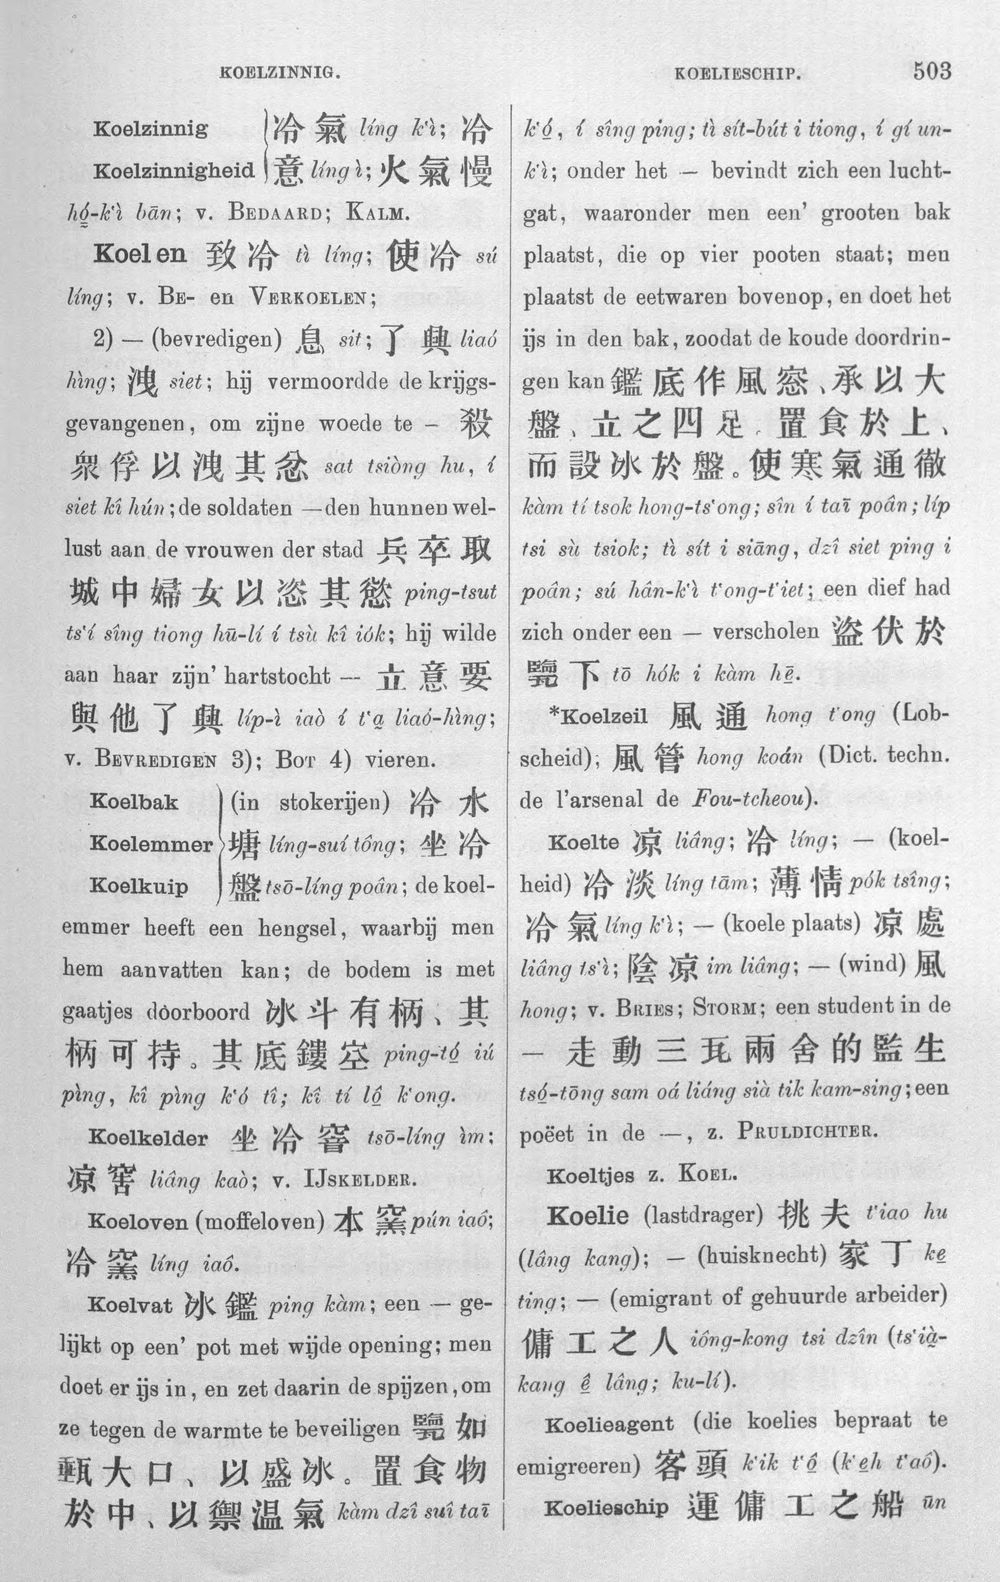 KOELZINNIG.
KOELIESCHIP. 503
Koelzinnig 冷氣 líng k'ì; 冷
Koelzinnigheid 意 líng ì; 火氣慢
hó̤-k'ì bān; v. BEDAARD; KALM.
Koelen 致冷 tì líng; 使冷 sú
líng; v. BE- en VERKOELEN;
2) — (bevredigen) 息 sit; 了興 liaó
hìng; 洩 siet; hij vermoordde de krijgs-
gevangenen, om zijne woede te – 殺
衆俘以洩其忿 sat tsiòng hu, í
siet kî hún; de soldaten —den hunnen wel-
lust aan de vrouwen der stad 兵卒取
城中婦女以恣其慾 ping-tsut
ts'í sîng tiong hū-lí í tsù kî iók; hij wilde
aan haar zijn' hartstocht — 立意要
與他了興 líp-ì iaò í t'a̤ liaó-hìng;
v. BEVREDIGEN 3); BOT 4) vieren.
Koelbak (in stokerijen) 冷水
Koelemmer 塘 líng-suí tông; 坐冷
Koelkuip 盤 tsō-líng poân; de koel-
emmer heeft een hengsel, waarbij men
hem aanvatten kan; de bodem is met
gaatjes doorboord 冰斗有柄、其
柄可持。其底鏤空 ping-tó̤ iú
pìng, kî pìng k'ó tî; kî tí lô̤ k'ong.
Koelkelder 坐冷窨 tsō-líng ìm;
凉窖 liâng kaò; v. IJSKELDER.
Koeloven (moffeloven) 本窯 pún iaô;
冷窯 líng iaô.
Koelvat 冰鑑 ping kàm; een — ge-
lijkt op een' pot met wijde opening; men
doet er ijs in, en zet daarin de spijzen, om
ze tegen de warmte te beveiligen 鑑如
甀大口、以盛冰。置食物
於中、以禦温氣 kàm dzî suî taī
k'ó̤, í sîng ping; tì sít-bút i tiong, í gí un-
k'ì; onder het — bevindt zich een lucht-
gat, waaronder men een' grooten bak
plaatst, die op vier pooten staat; men
plaatst de eetwaren bovenop, en doet het
ijs in den bak, zoodat de koude doordrin-
gen kan 鑑底作風窓、承以大
盤、立之四足.置食於上、
而設冰於盤。使寒氣通徹
kàm tí tsok hong-ts'ong; sîn í taī poân; líp
tsi sù tsiok; tì sít i siāng, dzî siet ping i
poân; sú hân-k'ì t'ong-t'iet; een dief had
zich onder een — verscholen 盜伏於
鑑下 tō hók i kàm hē̤.
*Koelzeil 風通 hong t'ong (Lob-
scheid); 風管 hong koán (Dict. techn.
de l'arsenal de Fou-tcheou).
Koelte 凉 liâng; 冷 líng; — (koel-
heid) 冷淡 líng tām; 薄情 pók tsîng;
冷氣 líng k'ì; — (koele plaats) 凉處
liâng ts'ì; 陰凉 im liâng; — (wind) 風
hong; v. BRIES; STORM; een student in de
— 走動三瓦兩舍的監生
tsó̤-tōng sam oá liáng sià tik kam-sing; een
poëet in de —, z. PRULDICHTER.
Koeltjes z. KOEL.
Koelie (lastdrager) 挑夫 t'iao hu
(lâng kang); — (huisknecht) 家丁 ke̤
ting; — (emigrant of gehuurde arbeider)
傭工之人 iông-kong tsi dzîn (ts'ià̤-
kang ê̤ lâng; ku-lí).
Koelieagent (die koelies bepraat te
emigreeren) 客頭 k'ik t'ô̤ (k'e̤h t'aô).
Koelieschip 運傭工之船 ūn